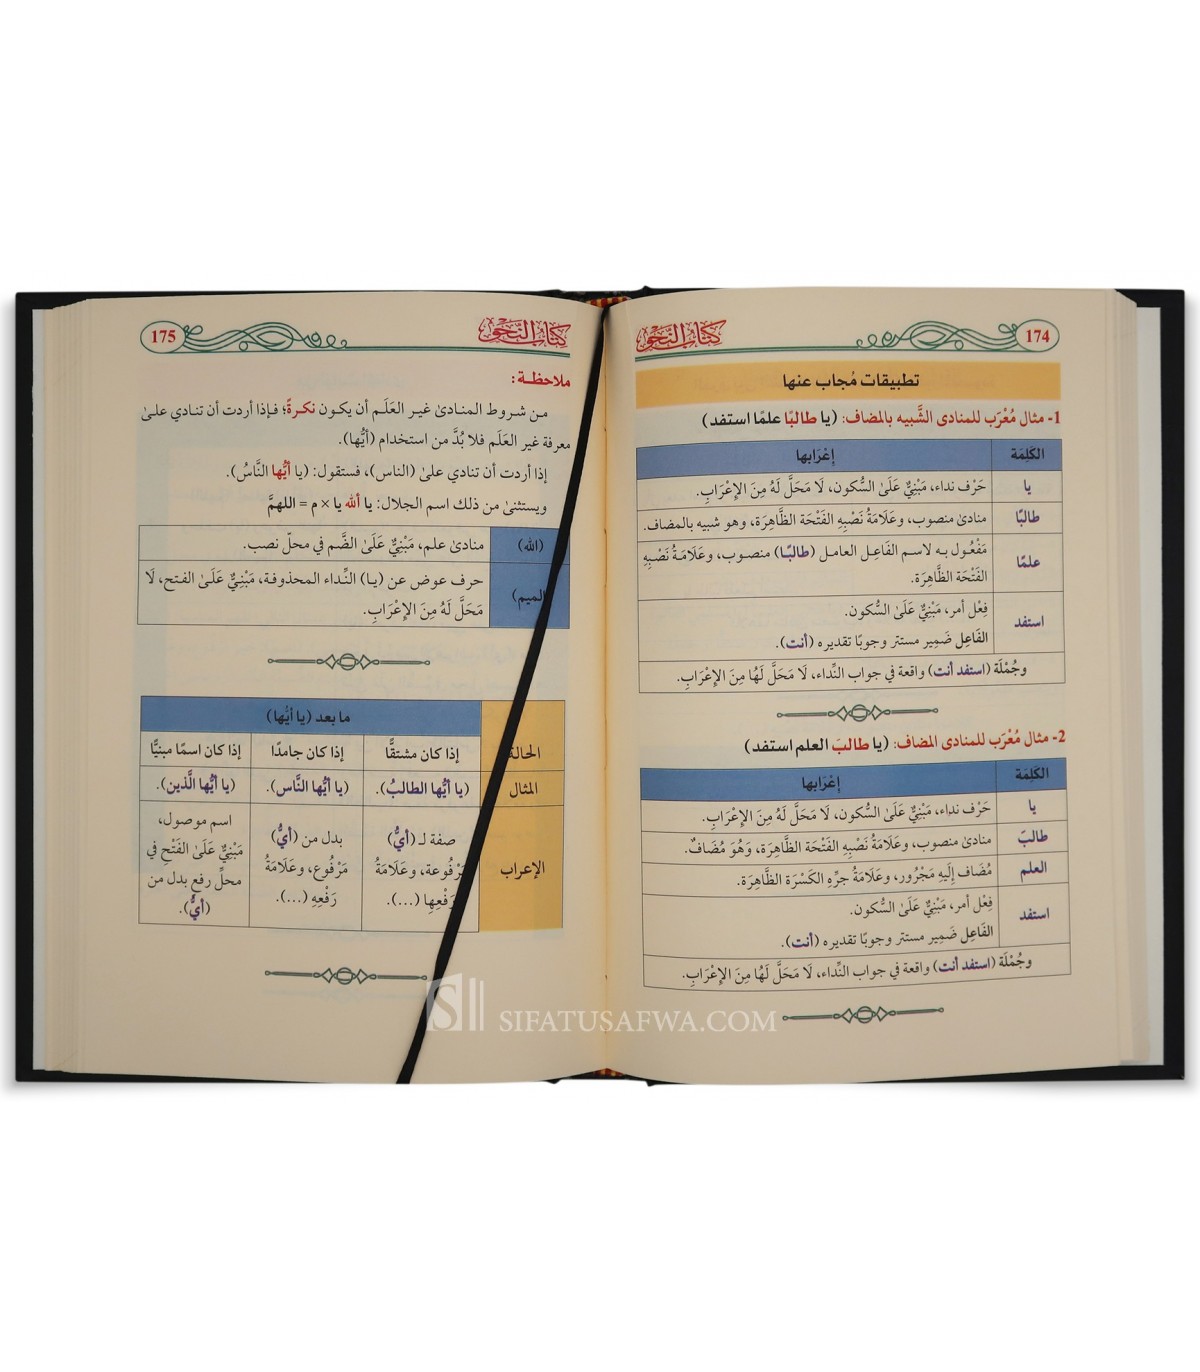 كتاب النحو
174
تطبيقات مُجاب عنها
1- مثال مُعْرَب للمنادى الشَّبيه بالمضاف: (يا طالبًا علمًا استفد)
الكَلِمَة
إعْرَابها
يا
حَرْف نداء، مَبْنِيٌّ عَلَىٰ السُّكون، لَا مَحَلَّ لَهُ مِنَ الإِعْرَابِ.
طالبًا
منادىٰ منصوب، وعَلَامَةُ نَصْبِهِ الفَتْحَة الظَّاهِرَة، وهو شبيه بالمضاف.
علمًا
مَفْعُول به لاسم الفَاعِل العامل (طالبًا) منصوب، وعَلَامَةُ نَصْبِهِ
الفَتْحَة الظَّاهِرَة.
استفد
فِعْل أمر، مَبْنِيٌّ عَلَىٰ السُّكون.
الفَاعِل ضَمِير مستتر وجوبًا تقديره (أنت).
وجُمْلَة (استفد أنت) واقعة في جواب النِّداء، لَا مَحَلَّ لَهَا مِنَ الإِعْرَابِ.
2- مثال مُعْرَب للمنادى المضاف: (يا طالبَ العلم استفد)
الكَلِمَة
إعْرَابها
يا
حَرْف نداء، مَبْنِيٌّ عَلَىٰ السُّكون، لَا مَحَلَّ لَهُ مِنَ الإِعْرَابِ.
طالبَ
منادىٰ منصوب، وعَلَامَةُ نَصْبِهِ الفَتْحَة الظَّاهِرَة، وَهُو مُضَافٌ.
العلم
مُضَاف إِلَيهِ مَجْرُور، وعَلَامَةُ جرِّهِ الكَسْرَة الظَّاهِرَة.
استفد
فِعْل أمر، مَبْنِيٌّ عَلَىٰ السُّكون.
الفَاعِل ضَمِير مستتر وجوبًا تقديره (أنت).
وجُمْلَة (استفد أنت) واقعة في جواب النِّداء، لَا مَحَلَّ لَهَا مِنَ الإِعْرَابِ.
كتاب النحو
175
ملاحظة:
من شروط المنادىٰ غير العَلَم أن يكون نكرةً؛ فإذا أردت أن تنادي علىٰ
معرفة غير العَلَم فلا بُدَّ من استخدام (أيُّها).
إذا أردت أن تنادي علىٰ (الناس)، فستقول: (يا أيُّها النَّاسُ).
ويستثنىٰ من ذلك اسم الجلال: يا الله يا × م = اللهمَّ
(الله)
منادىٰ علم، مَبْنِيٌّ عَلَىٰ الضَّم في محلّ نصب.
الميم)
حرف عوض عن (يا) النِّداء المحذوفة، مَبْنِيٌّ عَلَىٰ الفتح، لَا
مَحَلَّ لَهُ مِنَ الإِعْرَابِ.
ما بعد (يا أيُّها)
الحالة
إذا كان مشتقًّا
إذا كان جامدًا
إذا كان اسمًا مبنيًّا
المثال
(يا أيُّها الطالبُ).
(يا أيُّها النَّاس).
(يا أيُّها الَّذين).
الإعراب
صفة لـ (أيُّ)
مَرْفُوعة، وعَلَامَةُ
رَفْعِها (...).
بدل من (أيُّ)
مَرْفُوع، وعَلَامَةُ
رَفْعِهِ (...).
اسم موصول،
مَبْنِيٌّ عَلَىٰ الفَتْحِ في
محلِّ رفع بدل من
(أيُّ).
SIFATUSAFWA.COM